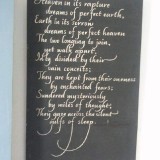 Heaven in its rapture
dreams of perfect earth,
Earth in its sorrow
dreams of perfect heaven
The two longing to join,
yet walk apart,
Idly divided by their
vain conceits;
They are kept from their oneness
by enchanted fears;
Sundered mysteriously
by miles of thought,
They gaze across the silent
gulfs of sleep.